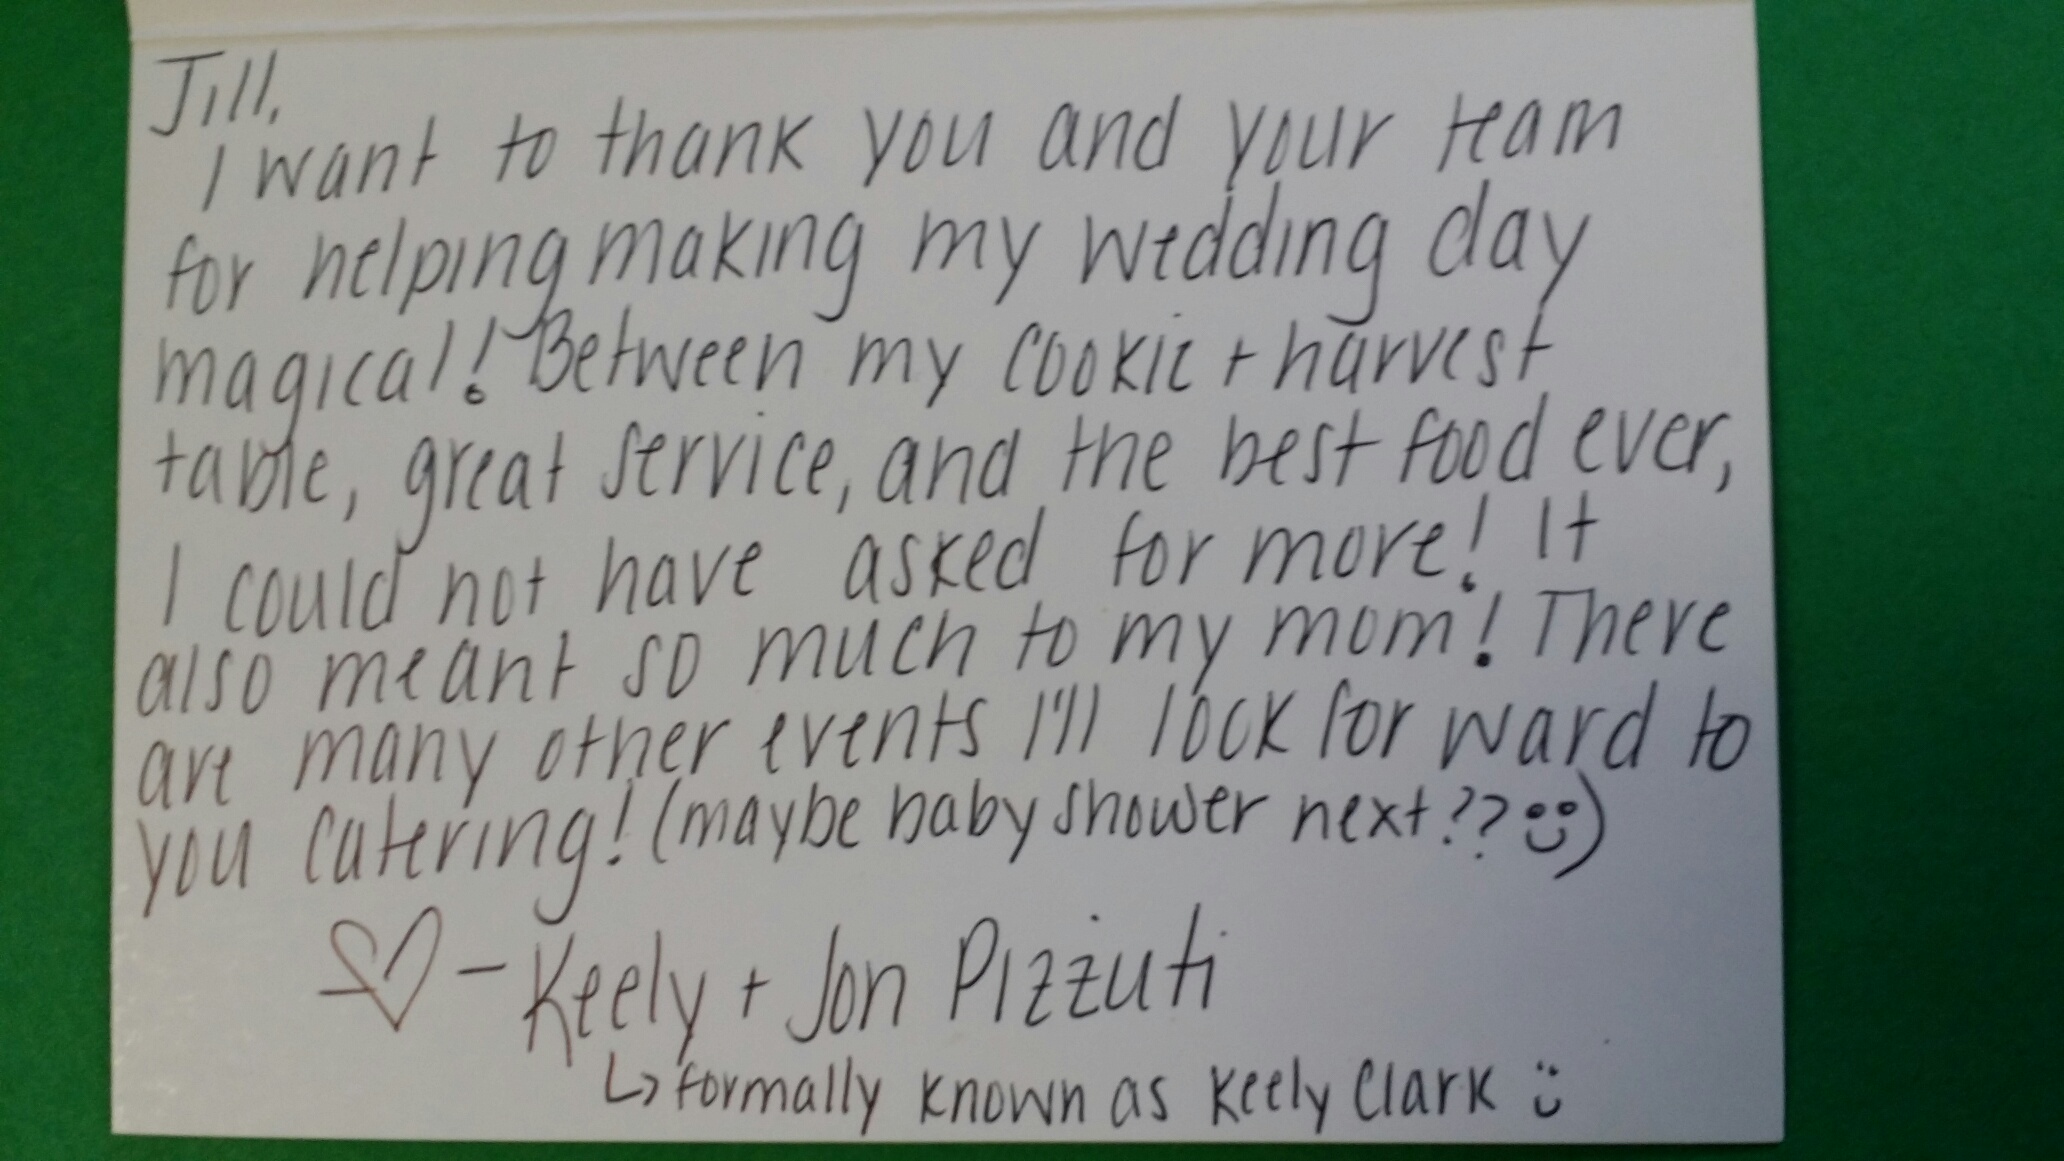 Jill,
I want to thank you and your team
for helping making my wedding day
magical! Between my cookie + harvest
table, great service, and the best food ever,
I could not have asked for more! It
also meant so much to my mom! There
are many other events I'll look forward to
you catering! (maybe baby shower next?? )
- Keely + Jon Pizzuti
↳ formally known as Keely Clark